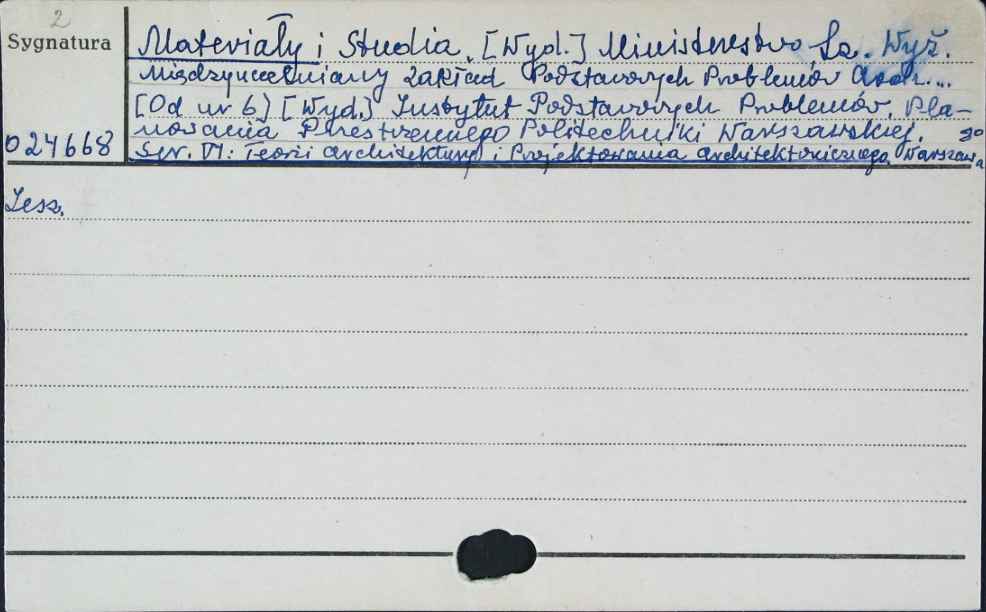 2
Sygnatura
024668
Materiały i Studia. [Wyd.] Ministerstwo Sz. Wyż.
Międzyuczelniany Zakład Podstawowych Problemów Arch...
[Od nr 6) [Wyd.] Instytut Podstawowych Problemów. Pla-
nowania Przestrzennego Politechniki Warszawskiej.
Ser. VI: Teorii architektury i Projektowania architektonicznego, Warszawa
Zesz.